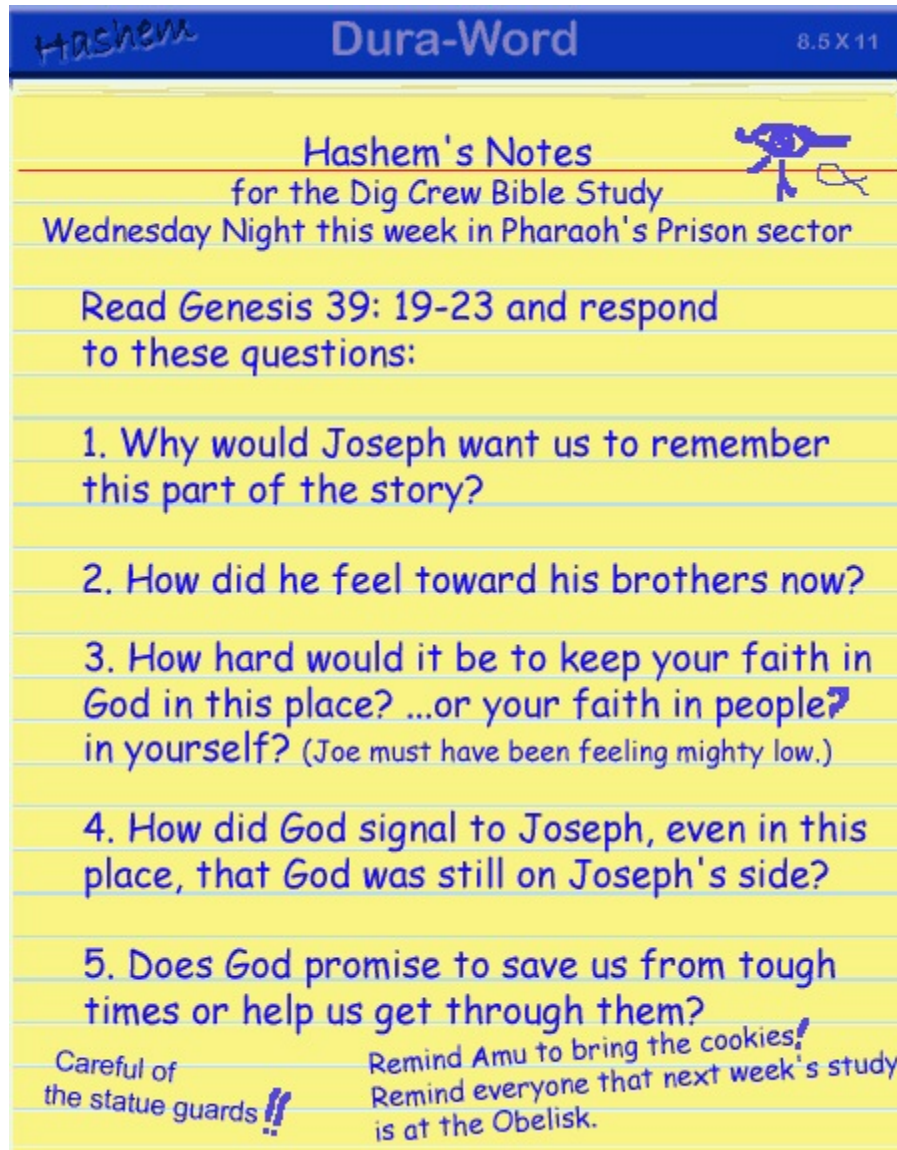 Hashem Dura-Word 8.5 X 11
Hashem's Notes
for the Dig Crew Bible Study
Wednesday Night this week in Pharaoh's Prison sector
Read Genesis 39: 19-23 and respond
to these questions:
1. Why would Joseph want us to remember
this part of the story?
2. How did he feel toward his brothers now?
3. How hard would it be to keep your faith in
God in this place? ...or your faith in people?
in yourself? (Joe must have been feeling mighty low.)
4. How did God signal to Joseph, even in this
place, that God was still on Joseph's side?
5. Does God promise to save us from tough
times or help us get through them?
Careful of
the statue guards!!
Remind Amu to bring the cookies!
Remind everyone that next week's study
is at the Obelisk.